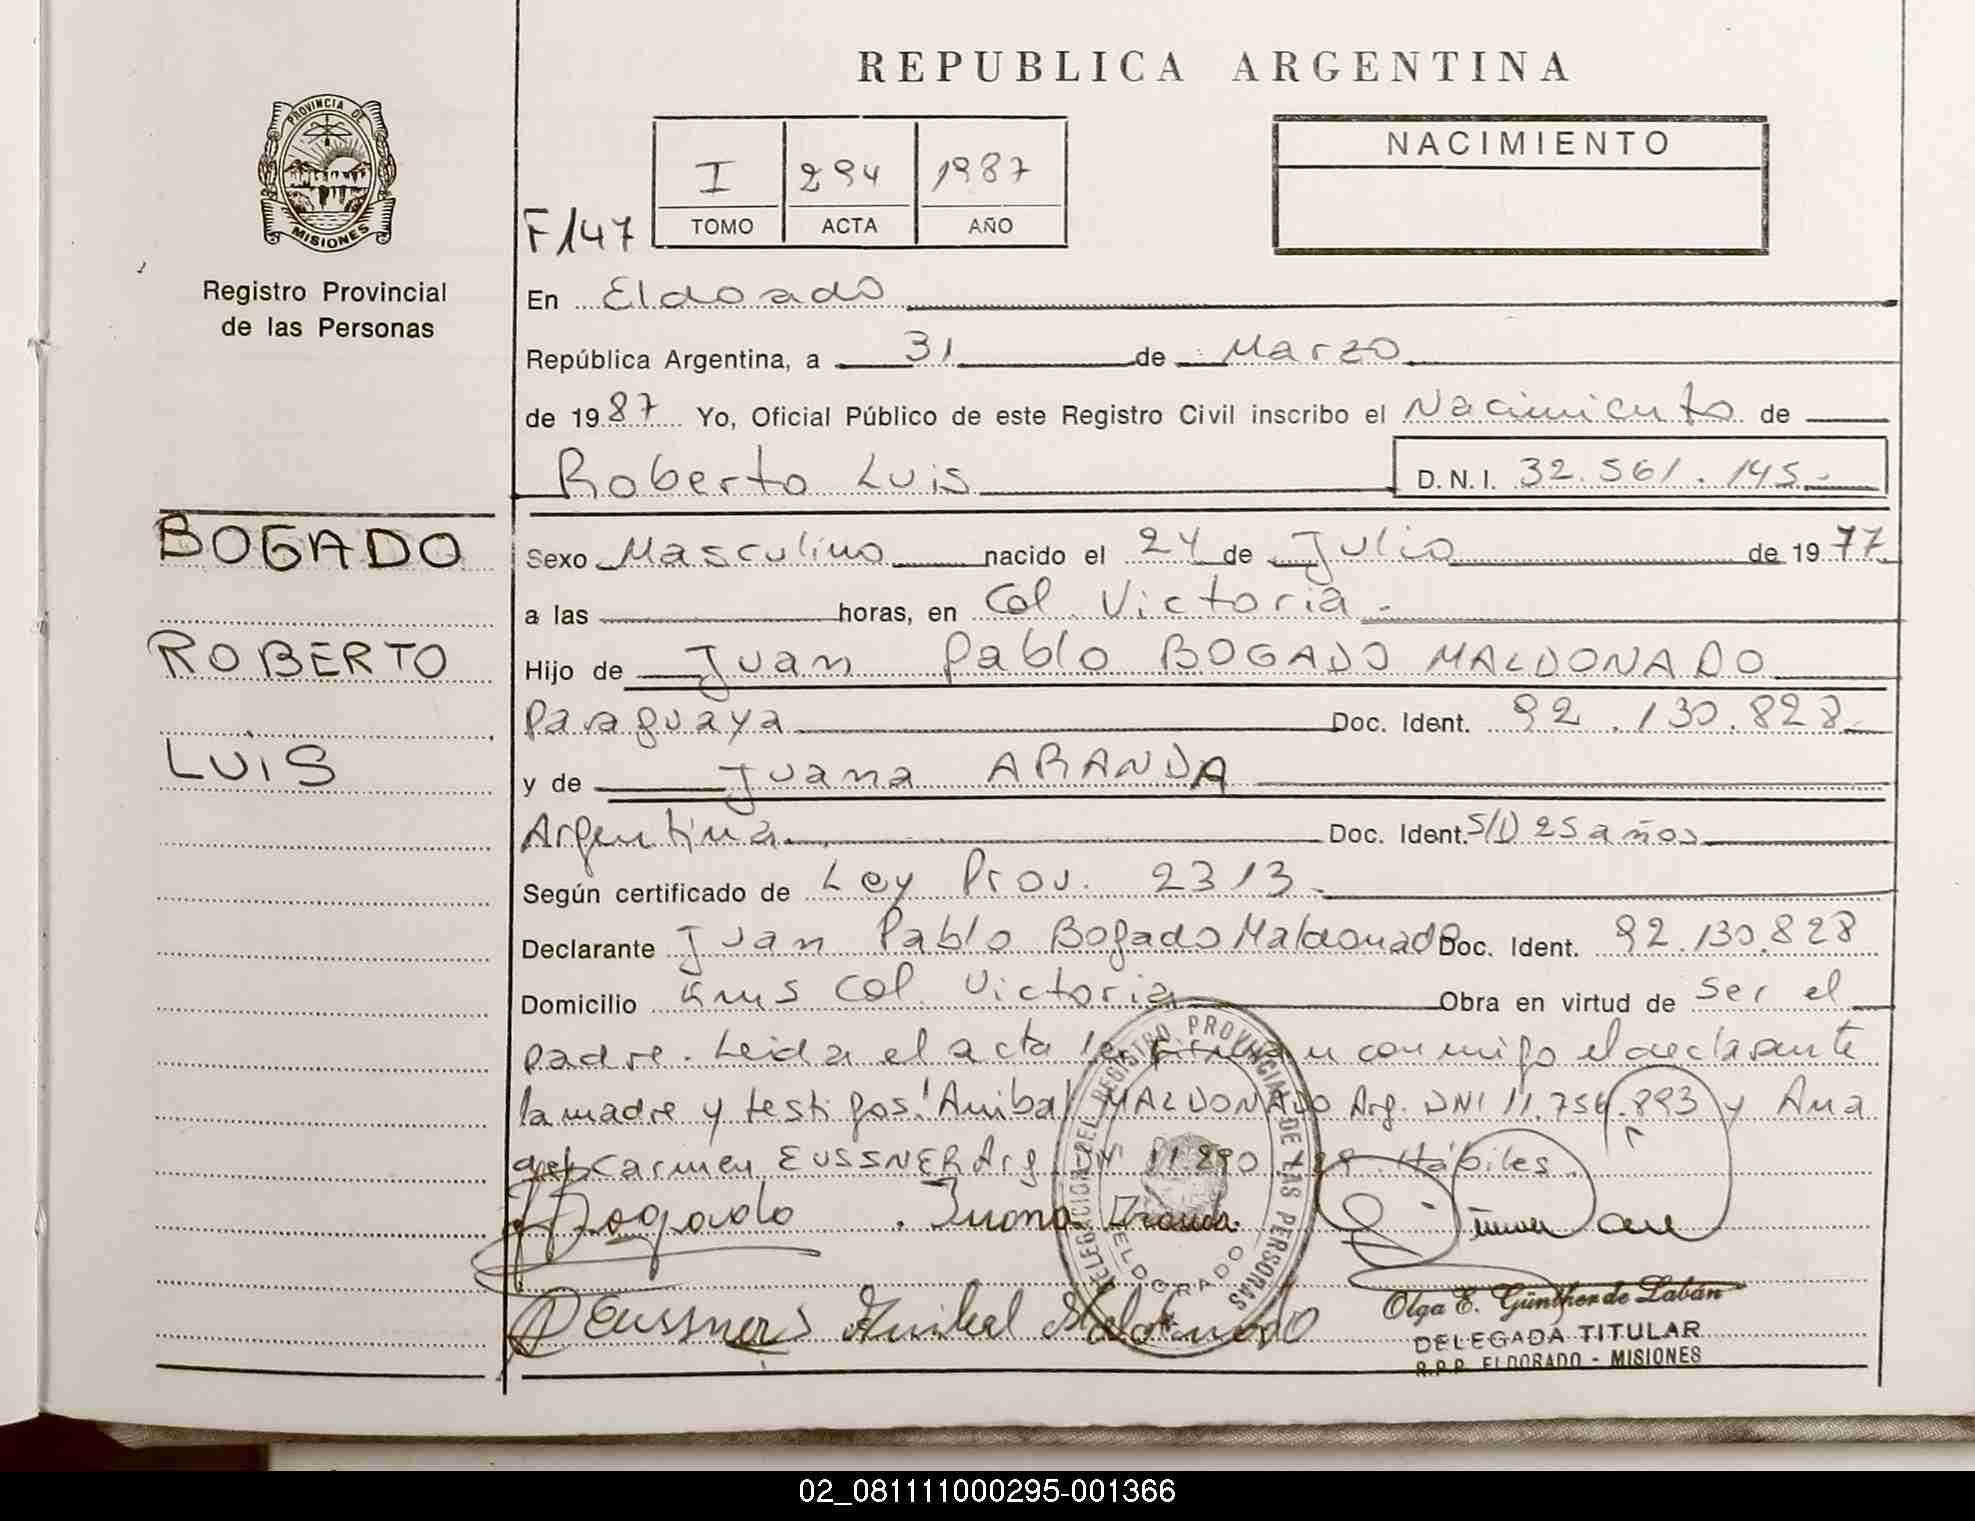 REPUBLICA ARGENTINA
PROVINCIA DE
MISIONES
Registro Provincial
de las Personas
F/147
I 294 1987
TOMO ACTA AÑO
NACIMIENTO
En Eldorado
República Argentina, a 31 de Marzo
de 1987 Yo, Oficial Público de este Registro Civil inscribo el Nacimiento de
Roberto Luis D.N.I. 32.561.145.-
BOGADO
ROBERTO
LUIS
Sexo Masculino nacido el 24 de Julio de 1977
a las horas, en Col. Victoria.-
Hijo de Juan Pablo BOGADO MALDONADO
Paraguaya Doc. Ident. 92.130.828.-
y de Juana ARANDA
Argentina Doc. Ident. S/D 25 años
Según certificado de Ley Prov. 2313.-
Declarante Juan Pablo Bogado Maldonado Doc. Ident. 92.130.828
Domicilio Kms Col. Victoria Obra en virtud de ser el
padre. Leida el acta la firman conmigo el declarante
la madre y testigos: Anibal MALDONADO Arg. DNI 11.756.893 y Ana
del Carmen EUSSNER Arg. Hábiles.
Bogado Juana Aranda
Eussner Anibal Maldonado
DELEGACION DEL REGISTRO PROVINCIAL DE LAS PERSONAS
ELDORADO
Olga E. Günther de Labán
DELEGADA TITULAR
R.P.P. ELDORADO - MISIONES
02_081111000295-001366